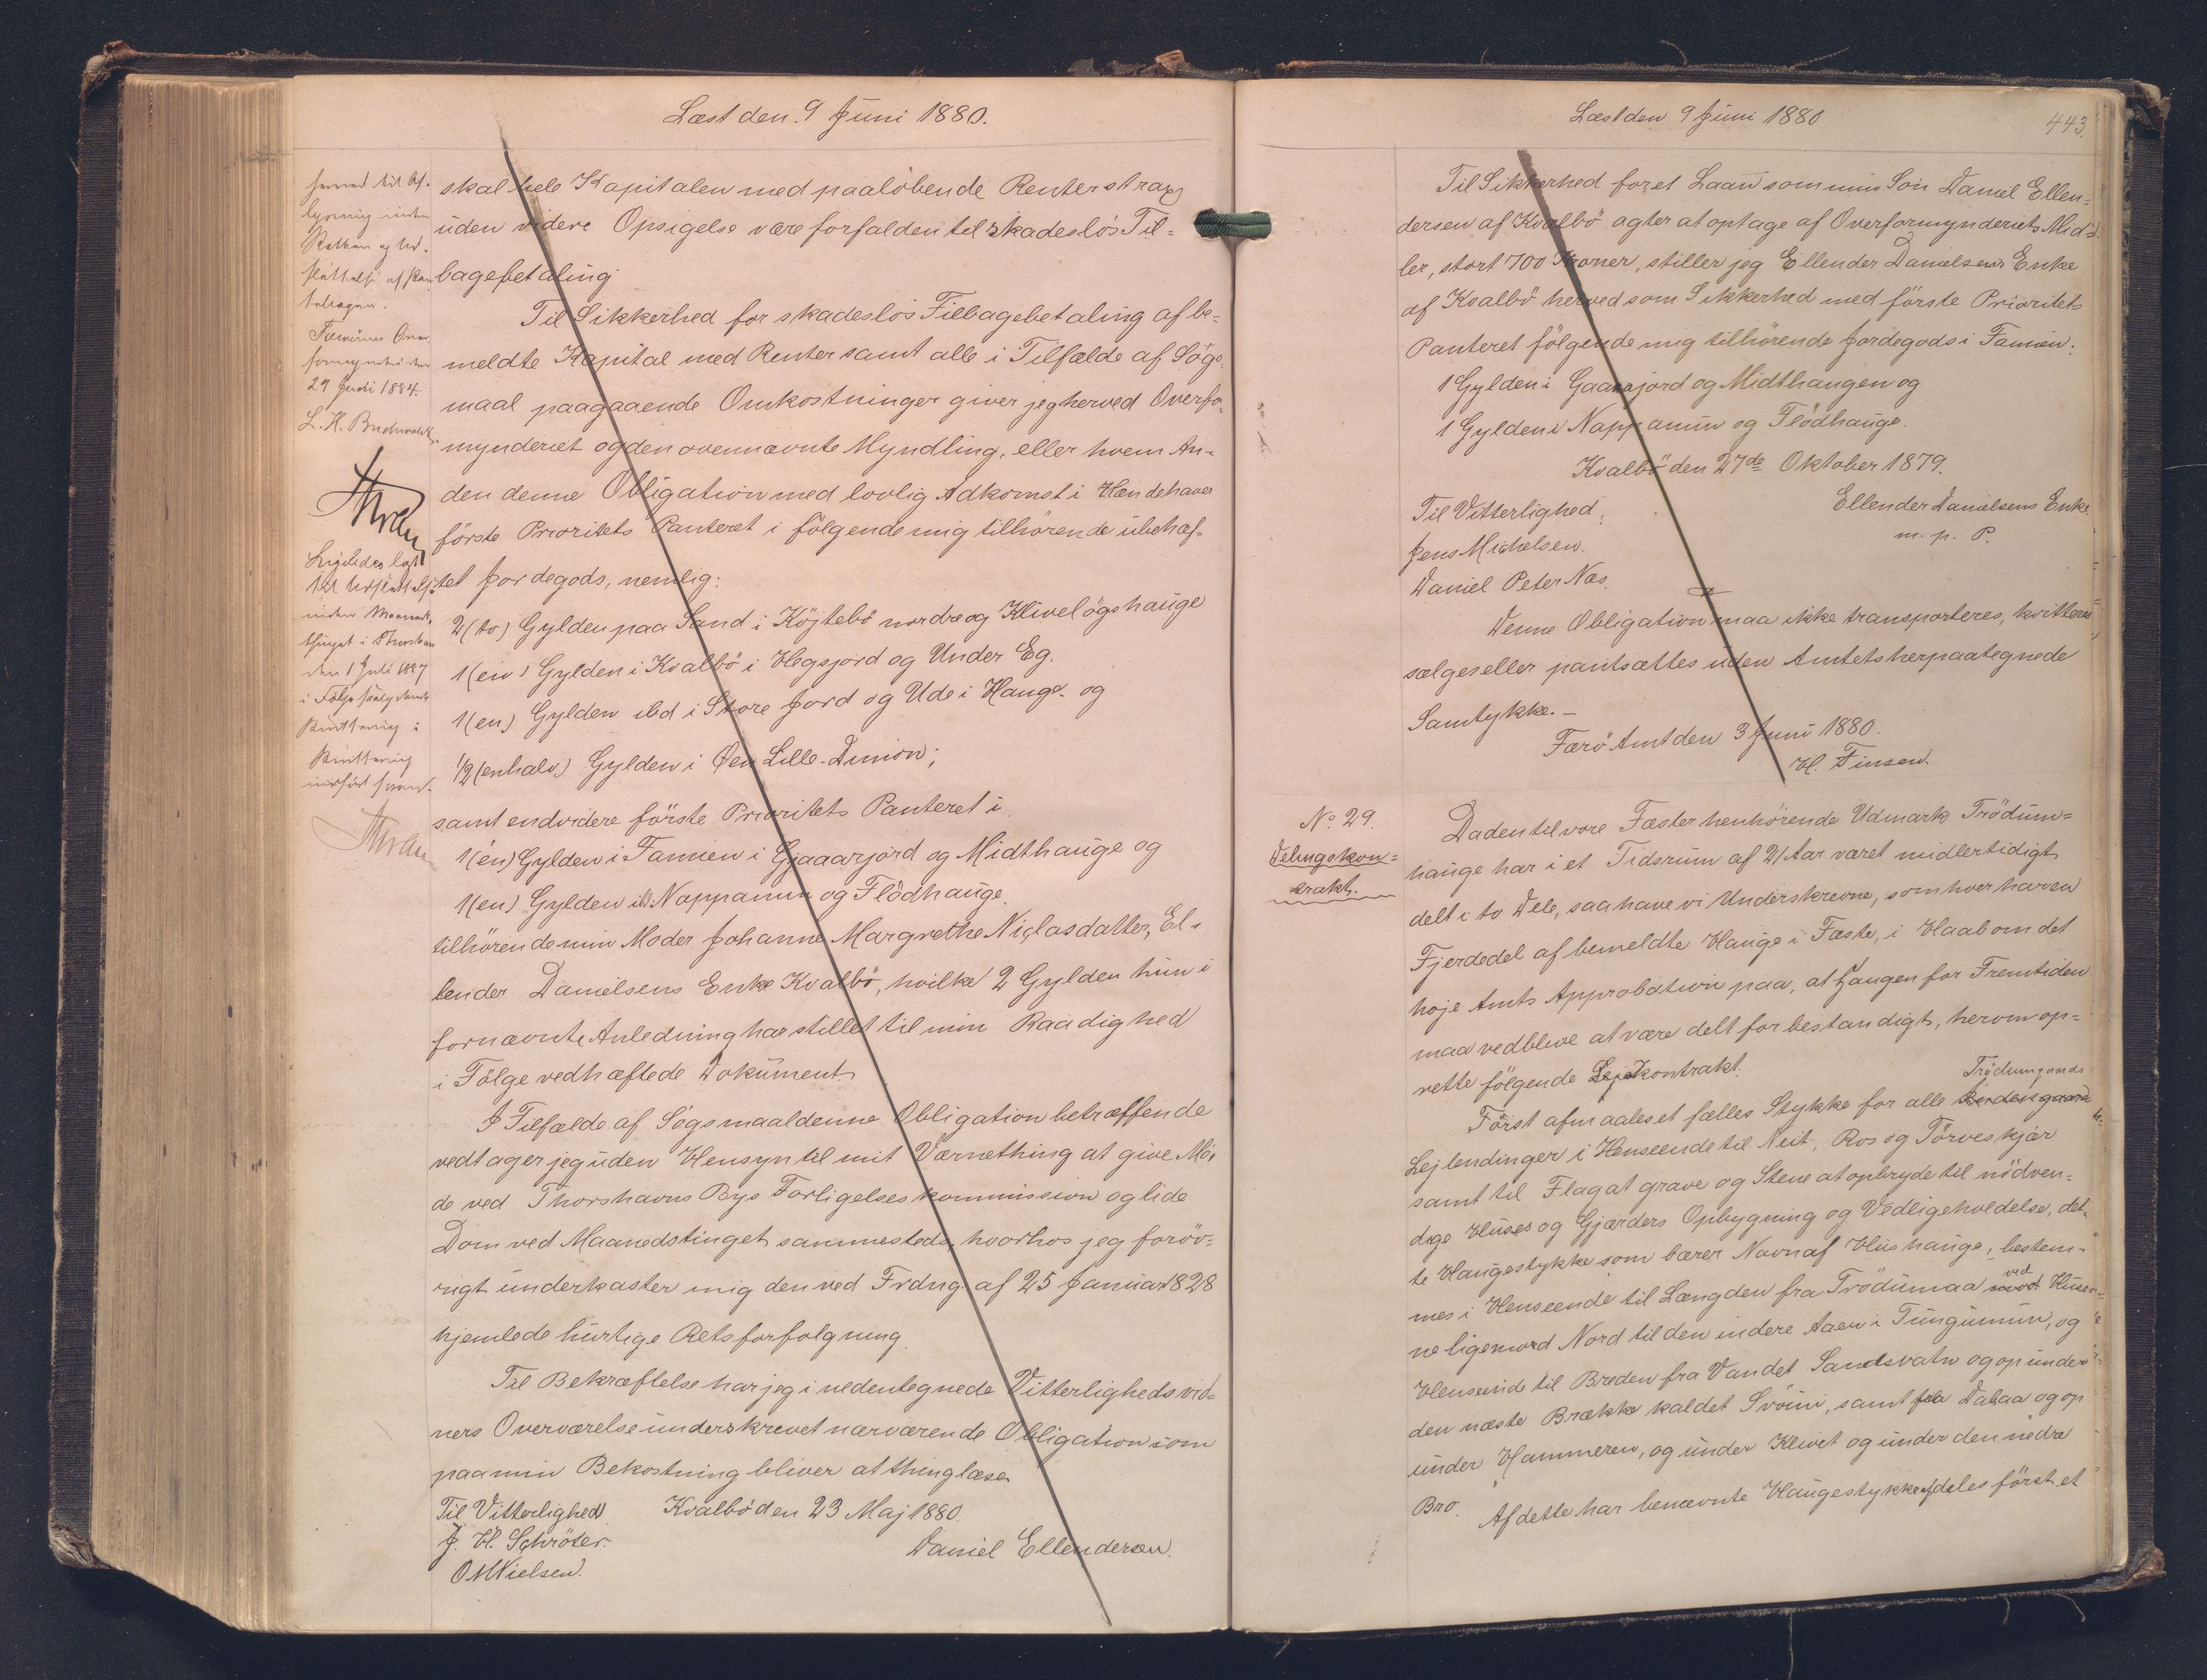 Læst den 9 Juni 1880.
lysning inden
Retten og Ud-
slettelse af Pan-
tebogen.
Færøernes Over-
formynderi den
29 Juni 1884.
L. H. Buchwaldt
Ligeledes læst
til Udslettelse
inden Maaneds-
thinget i Thorshavn
den 1 Juli 1887
i Følge
Kvittering
skal hele Kapitalen med paaløbende Renter strax
uden videre Opsigelse være forfalden til skadesløs Til-
bagebetaling
Til Sikkerhed for skadesløs Tilbagebetaling af be-
meldte Kapital med Renter samt alle i Tilfælde af Søgs-
maal paagaaende Omkostninger giver jeg herved Overfor-
mynderiet og den ovennævnte Myndling, eller hvem An-
den denne Obligation med lovlig Adkomst i Hændehaver
første Prioritets Panteret i følgende mig tilhørende ubehæf-
tet Jordegods, nemlig:
2 (to) Gylden paa Sand i Köjtebö nordre og Klivelögshauge
1 (en) Gylden i Kvalbö i Hegsjord og Under Eg.
1 (en) Gylden ibd i Store Jord og Ude i Hauge og
1/2 (enhalv) Gylden i Øen Lille-Dimon;
samt endvidere første Prioritets Panteret i
1 (én) Gylden i Famien i Gjaaarjord og Midthauge og
1 (en) Gylden ibd Nappanum og Flödhauge.
tilhørende min Moder Johanne Margrethe Niclasdatter, El-
lender Danielsens Enke Kvalbö, hvilke 2 Gylden hun i
fornævnte Anledning har stillet til min Raadighed
i Følge vedhæftede Dokument
I Tilfælde af Søgsmaal denne Obligation betræffende
vedtager jeg uden Hensyn til mit Værnething at give Mö-
de ved Thorshavns Byes Forligelseskommission og lide
Dom ved Maanedstinget sammesteds, hvorhos jeg forøv-
rigt underkaster mig den ved Frdng. af 25 Januar 1828
hjemlede hurtige Retsforfølgning
Til Bekræftelse har jeg i nedentegnede Vitterligheds vid-
ners Overværelse underskrevet nærværende Obligation som
paa min Bekostning bliver at thinglæse
Til Vitterlighed Kvalbö den 23 Maj 1880.
J. H. Schröter. Daniel Ellendersen.
O M Nielsen.
Læst den 9 Juni 1880
443.
Til Sikkerhed for et Laan som min Sön Daniel Ellen-
dersen af Kvalbö agter at optage af Overformynderiets Mid-
ler, stort 700 Kroner, stiller jeg Ellender Danielsens Enke
af Kvalbö herved som Sikkerhed med förste Prioritets
Panteret fölgende mig tilhörende Jordegods i Famien:
1 Gylden i Gaaarjord og Midthaugen og
1 Gylden i Nappanum og Flödhauge.
Kvalbö den 27de Oktober 1879.
Til Vitterlighed: Ellender Danielsens Enke
Jens Michelsen. m. p. P.
Daniel Peter Næs.
Denne Obligation maa ikke transporteres, kvitteres
sælges eller pantsættes uden Amtets herpaategnede
Samtykke. —
Færö Amt den 3 Juni 1880.
H. Finsen.
No 29.
Delingskon-
trakt.
Da den til vore Fæster henhörende Udmark Trödum-
hauge har i et Tidsrum af 21 Aar været midlertidigt
delt i to Dele, saa have vi Underskrevne, som hver haver en
Fjerdedel af bemeldte Hauge i Fæste, i Haab om det
höje Amts Approbation paa, at Haugen for Fremtiden
maa vedblive at være delt for bestandigt, herom op-
rette fölgende Lejekontrakt.
Först afmaales et fælles Stykke for alle Trödumgaards
Lejlendinger i Henseende til Neit, Ros og Törveskjær
samt til Flag at grave og Stene at opbryde til nödven-
dige Huses og Gjærders Opbygning og Vedligeholdelse, det-
te Haugestykke som bærer Navn af Hushauge, bestem-
mes i Henseende til Længden fra Trödumaa ved Huse-
ne ligemod Nord til den indere Aaen i Tungumun, og
Henseende til Breden fra Vandet Sandsvatn og op under
den næste Brække kaldet Svöini, samt fra Dalaa og op
under Hammeren, og under Klivet og under den nedre
Bro. Af dette har benævnte Haugestykke afdeles först et